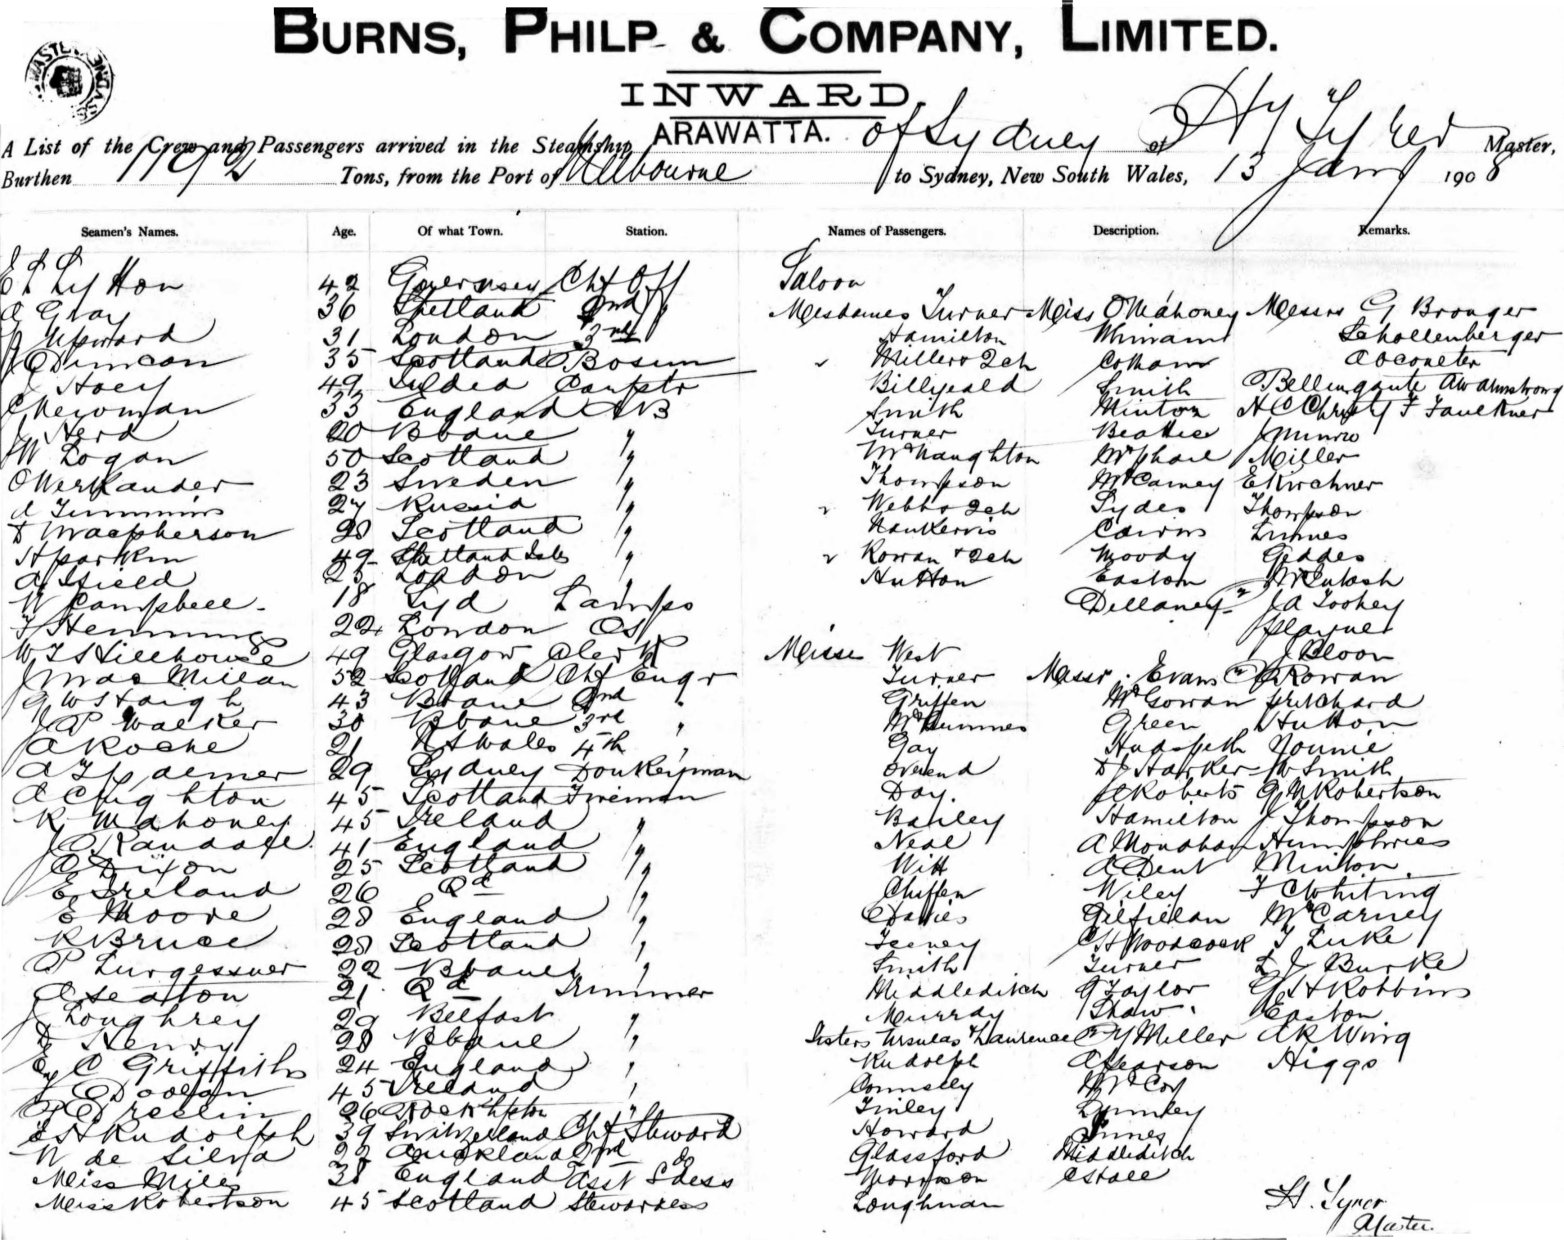 BURNS, PHILP & COMPANY, LIMITED.
INWARD.
A List of the Crew and Passengers arrived in the Steamship ARAWATTA. of Sydney Master,
Burthen Tons, from the Port of Melbourne to Sydney, New South Wales, 13 Jany 1908
Seamen's Names. Age. Of what Town. Station. Names of Passengers. Description. Remarks.
42 Guernsey Chf Off Saloon
A Gray 36 Shetland 2nd " Mesdames Turner Miss O'Mahoney Messrs G Bronger
31 London 3rd Hamilton Schollenberger
Duncan 35 Scotland Bosun Miller & 2ch
J Hoey 49 Carptr Smith Armstrong
C Newman 33 England AB Smith Minton H C Christy F Faulkner
J Herd 20 Bbane " Turner Beattie J Munro
W Logan 50 Scotland " McNaughton McPhail Miller
23 Sweden " Thompson McCarney E Kirchner
27 Russia " Webb & 2ch Sydes Thompson
D Macpherson 28 Scotland " Nankervis Cairns
H Parkin 49 Shetland Isles " Rowan & 2ch Moody Geddes
A Field 25 London " Hutton Eastom McIntosh
W Campbell 18 Syd Lamps Dellaney J A Toohey
F Hemmings 22 London OS
W T S Hillhouse 49 Glasgow Clerk Misses West
J MacMillan 52 Scotland Chf Engr Turner Messr. Evans Rowan
G W Straigh 43 Bbane 2nd " Griffen McGowan Pritchard
J P Walker 30 Bbane 3rd " Green Hutton
A Roche 21 N S Wales 4th " Gay Hudspeth Younie
29 Sydney Donkeyman D J Harker W Smith
A C Highton 45 Scotland Fireman Day. J C Roberts G N Robertson
K Mahoney 45 Ireland " Bailey Hamilton J Thompson
J C Randall 41 England " Neal A Monahan Humphries
A Dixon 25 Scotland " Witt A Dent Minton
E Ireland 26 Qd " Chiffen Wiley F C Whiting
E Moore 28 England " Davies Gilfillan McCarney
R Bruce 28 Scotland " Feeney C H Woodcock F Luke
22 Bbane " Smith Turner L J Burke
A Seaton 21 Qd Trimmer Middleditch G Taylor G H Robbins
J Loughrey 29 Belfast " Murray Shaw Easton
D Henry 28 Bbane " Sisters Ursulas & Laurence C Y Miller A R Wing
E C Griffiths 24 England " Rudolph A Pearson Higgs
45 Ireland " McCoy
P Breslin 26 Rockhpton " Finley Lumley
E H Rudolph 39 Switzerland Chf Steward Howard Innes
W de Silva 22 Auckland 2nd do Glassford Middleditch
Miss Miles 38 England Asst S'dess Morrison Estall
Miss Robertson 45 Scotland Stewardess Loughnan H. Tyrer
Master.